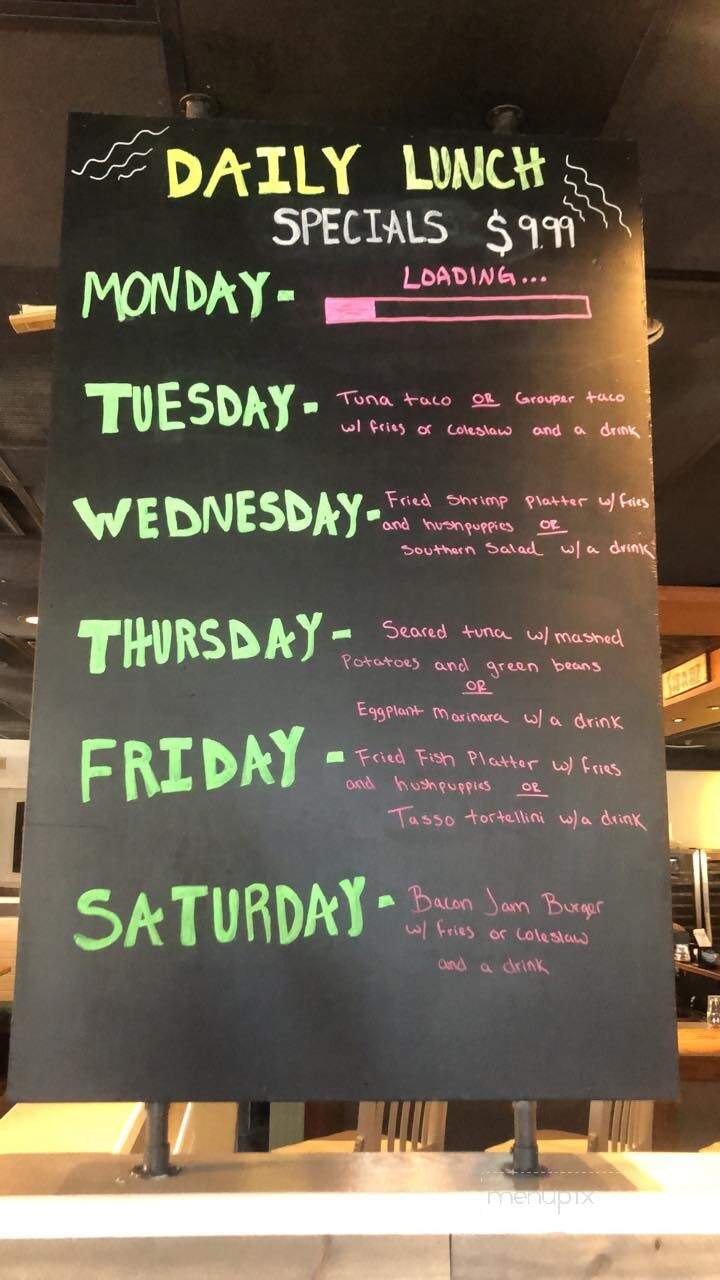 DAILY LUNCH
SPECIALS $9.99
LOADING...
MONDAY-
TUESDAY- Tuna taco OR Grouper taco
w/ fries or coleslaw and a drink
WEDNESDAY- Fried Shrimp platter w/ fries
and hushpuppies OR
Southern Salad w/ a drink
THURSDAY- Seared tuna w/ mashed
Potatoes and green beans
OR
Eggplant Marinara w/ a drink
FRIDAY- Fried Fish Platter w/ fries
and hushpuppies OR
Tasso tortellini w/ a drink
SATURDAY- Bacon Jam Burger
w/ fries or coleslaw
and a drink
menupix